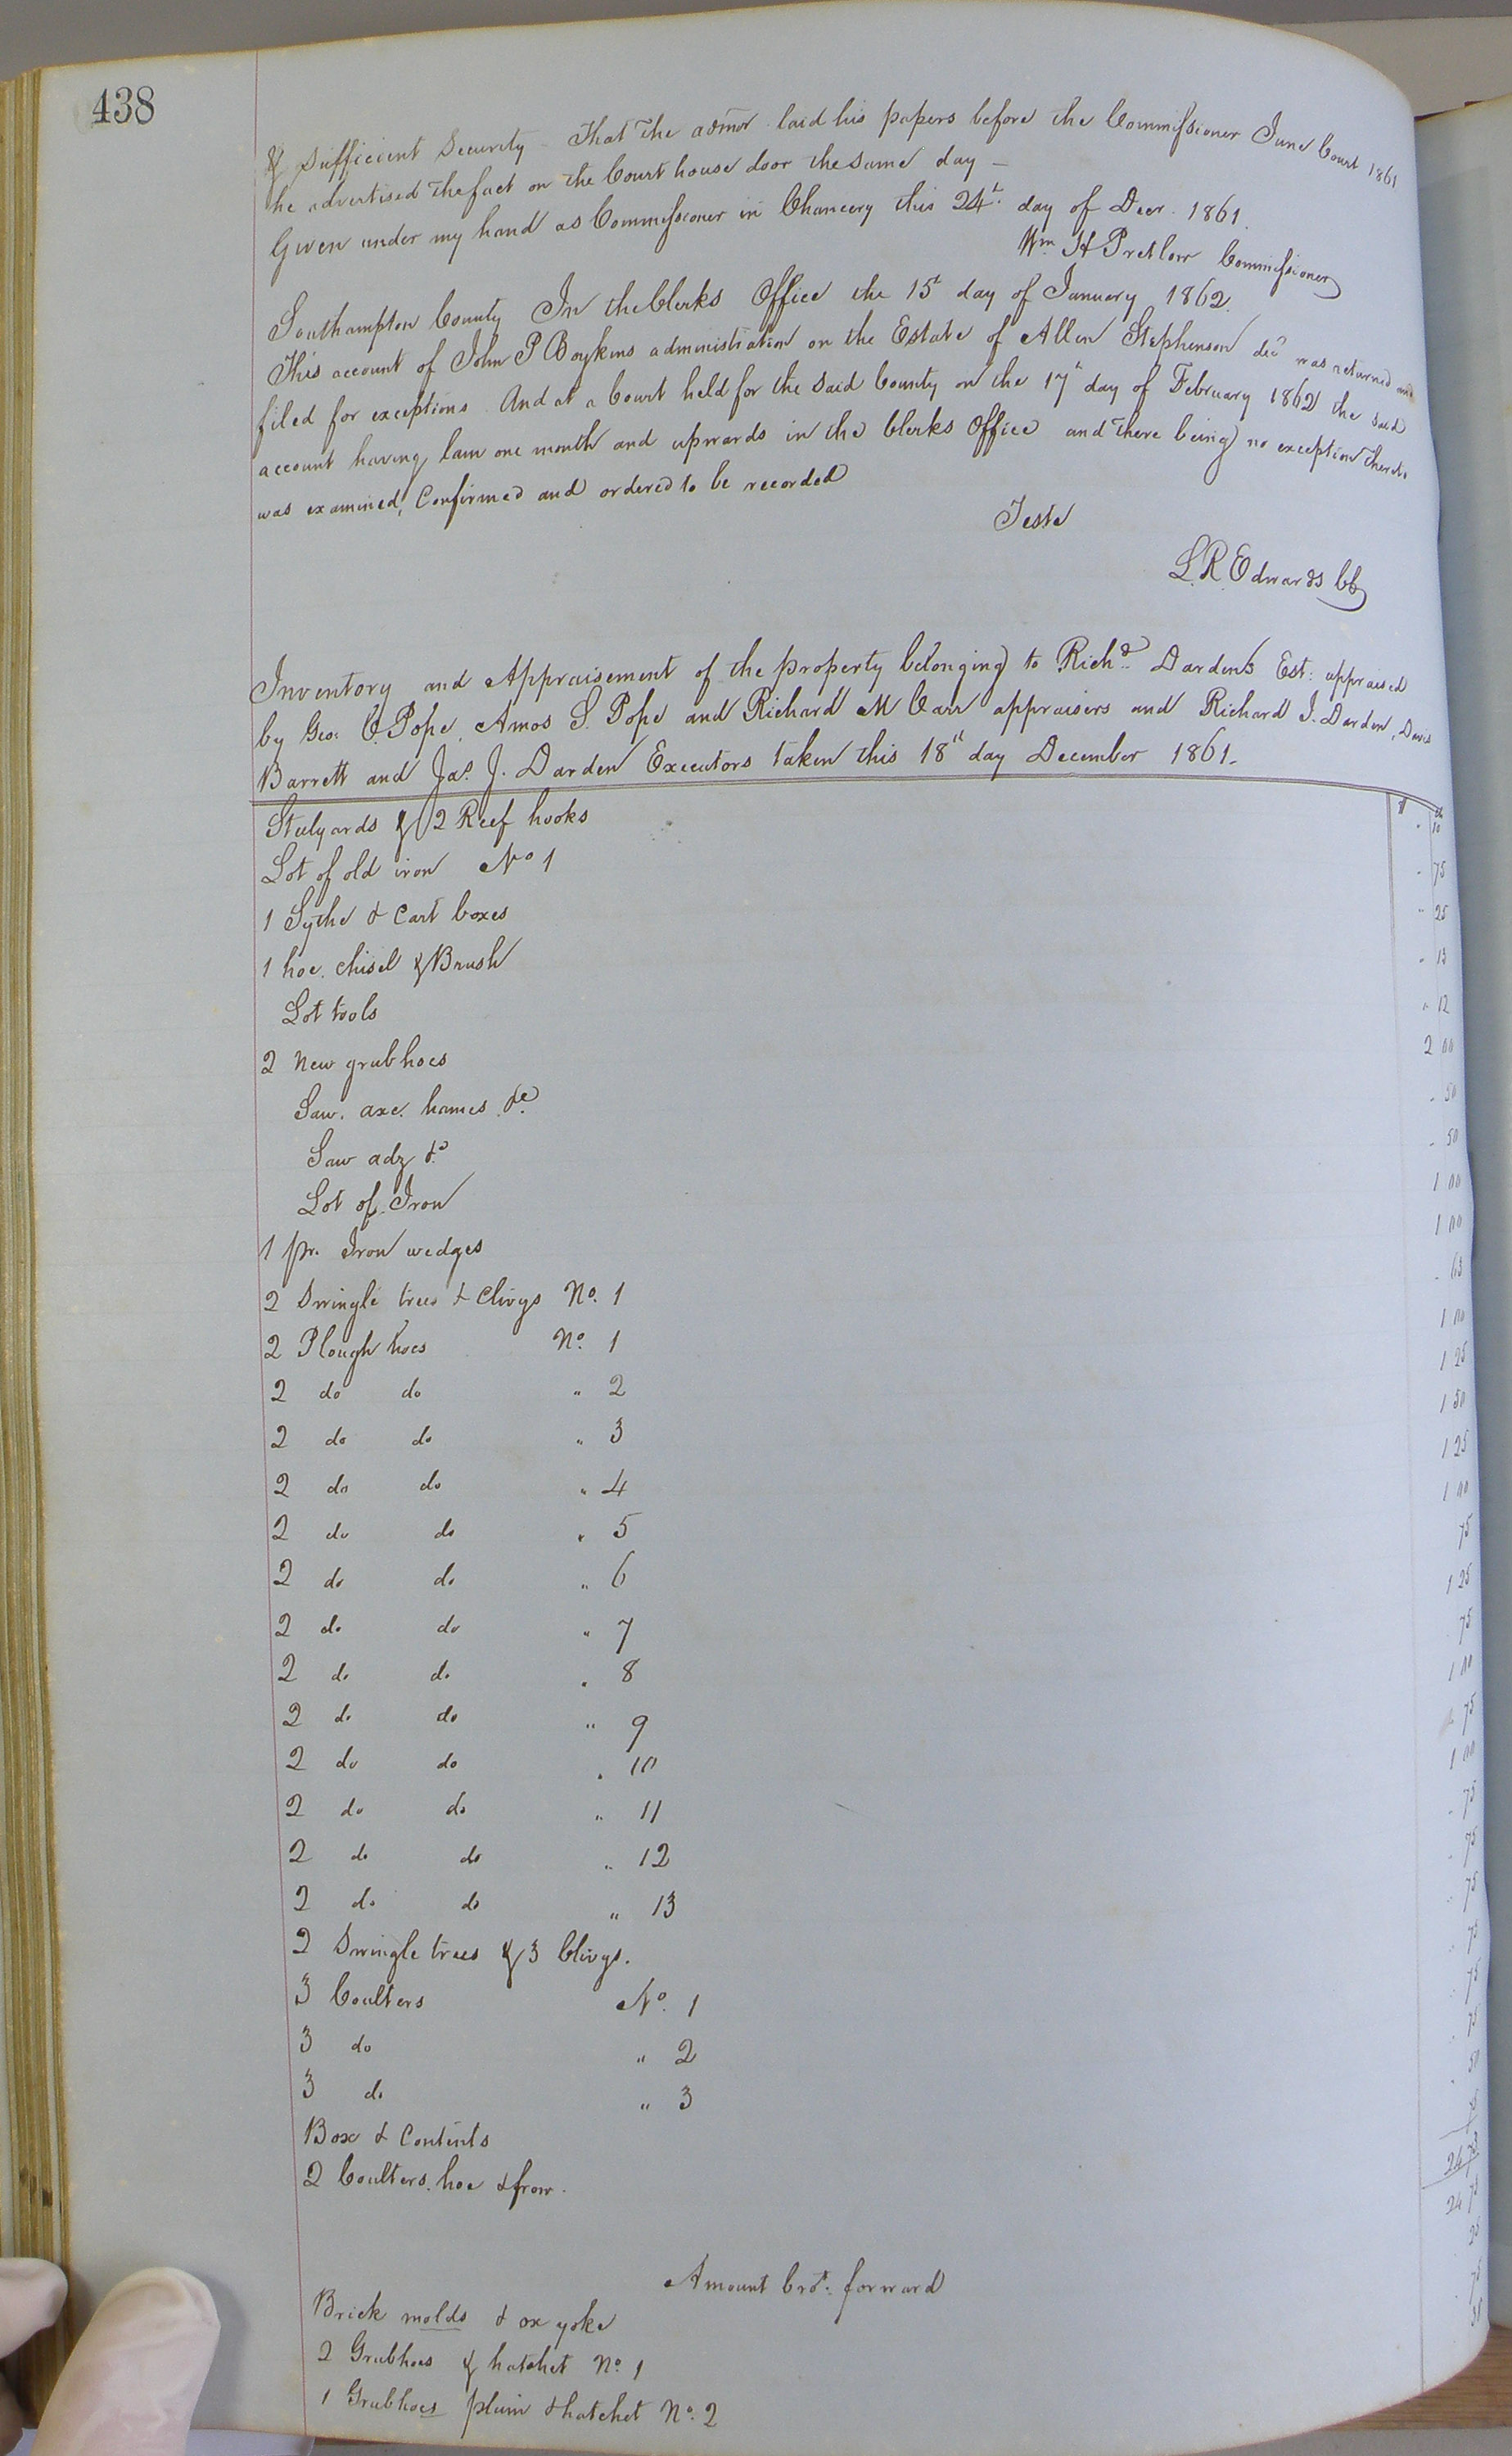 438
& sufficient Security – That the admor laid his papers before the Commissioner June Court 1861
he advertised the fact on the Court house door the same day –
Given under my hand as Commissioner in Chancery this 24th day of Decr. 1861.
Wm H Pretlow Commissioner
Southampton County In the Clerks Office the 15th day of January 1862.
This account of John P Boykins administration on the Estate of Allen Stephenson decd was returned and
filed for exceptions. And at a Court held for the said County on the 17th day of February 1862 the said
account having lain one month and upwards in the Clerks Office and there being no exception thereto
was examined, Confirmed and ordered to be recorded
Teste
L. R. Edwards CC
Inventory and Appraisement of the property belonging to Richd. Darden's Est: appraised
by Geo: C. Pope, Amos S. Pope and Richard M Carr appraisers and Richard J. Darden, Davis
Barrett and Jas. J. Darden Executors taken this 18th day December 1861.
Stulyards & 2 Reef hooks " 10
Lot of old iron No 1 " 75
1 Sythe & Cart boxes " 25
1 hoe. chisel & Brush " 13
Lot tools " 12
2 New grub hoes 2 00
Saw. axe. hames &c. " 50
Saw adz &c " 50
Lot of Iron 1 00
1 pr. Iron wedges 1 00
2 Swingle trees & Clivys No. 1 " 63
2 Plough hoes No. 1 1 00
2 do do " 2 1 25
2 do do " 3 1 50
2 do do " 4 1 25
2 do do " 5 1 00
2 do do " 6 75
2 do do " 7 1 25
2 do do " 8 75
2 do do " 9 1 00
2 do do " 10 " 75
2 do do " 11 1 00
2 do do " 12 " 75
2 do do " 13 " 75
2 Swingle trees & 3 Clivys. " 75
3 Coulters No. 1 " 75
3 do " 2 " 75
3 do " 3 " 75
Box & Contents " 50
2 Coulters. hoe & frow. 
Amount brot. forward
Brick molds & ox yoke
2 Grubhoes & hatchet No. 1
1 Grubhoes plain & hatchet No. 2